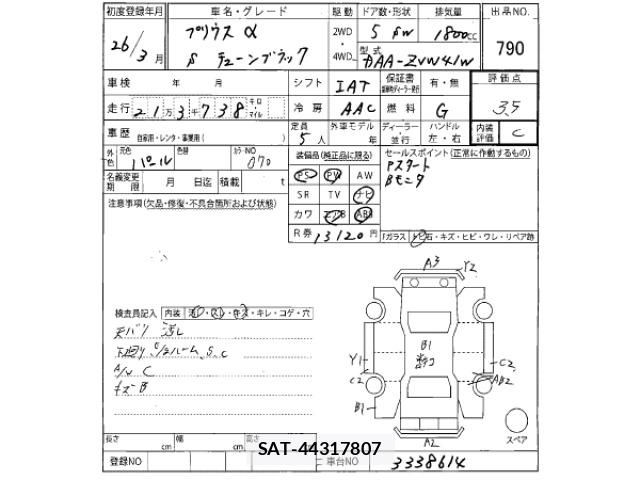 初度登録年月 車名・グレード 駆動 ドア数・形状 排気量 出品NO.
26/3月 プリウス α 2WD 5 5W 1800cc 790
S チューンブラック 4WD 型式 DAA-ZVW41W
車検 年 月 シフト IAT 保証書 有・無 評価点
走行 21万3千738 キロ マイル 冷房 AAC 燃料 G 3.5
車歴 自家用・レンタ・事業用( ) 定員 5人 外車モデル 年 ディーラー・並行 ハンドル 左・右 内装評価 C
外色 元色 パール 色替 カラーNO 070 装備品(純正品に限る) セールスポイント(正常に作動するもの)
名義変更期限 月 日迄 積載 t PS PW AW Pスタート
Bモニタ
注意事項(欠品・修復・不具合箇所および状態) SR TV ナビ
カワ エアB ABS
R券 13120円 「ガラス」 トビ石・キズ・ヒビ・ワレ・リペア跡
A3 Y2
検査員記入 内装 汚レ・スレ・キズ・キレ・コゲ・穴
天バリ 汚レ
下廻り S.C
A/W C
キズ B
B1
Y1 C2
C2 AB2
B1
A2
スペア
長さ cm 幅 cm 高さ
SAT-44317807
登録NO 車台NO 3338614